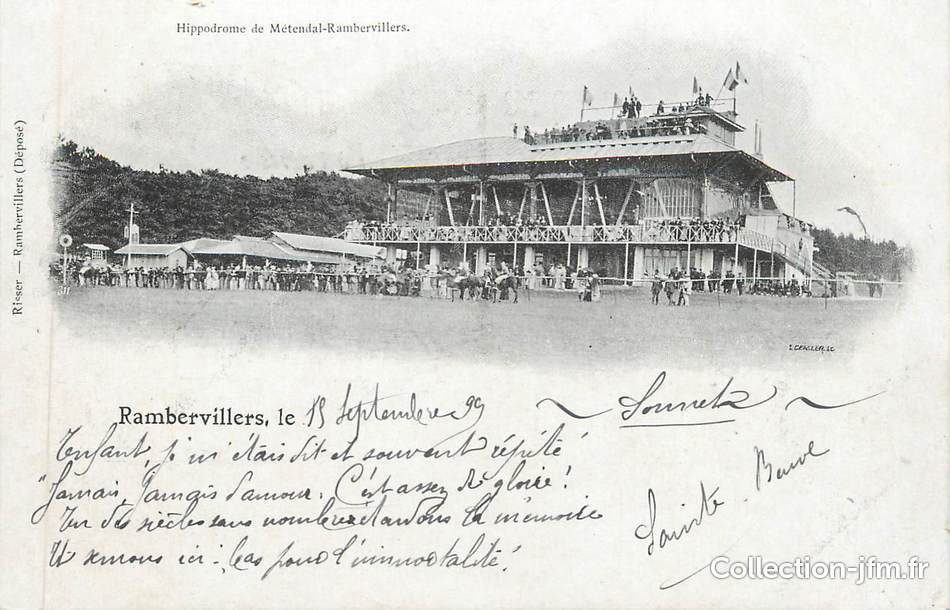 Hippodrome de Métendal-Rambervillers.
Risser — Rambervillers (Déposé)
Rambervillers, le 15 Septembre 99
Sonnet
Enfant, je m'étais dit et souvent répété
"Jamais, Jamais d'amour. C'est assez de gloire!
En des siècles sans nombre étendons la mémoire
Et semons ici-bas pour l'immortalité!
Sainte Beuve
www.Collection-jfm.fr